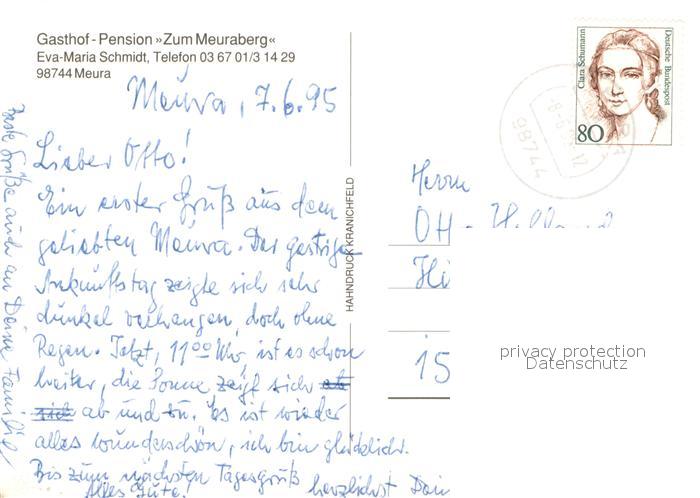 Gasthof - Pension »Zum Meuraberg«
Eva-Maria Schmidt, Telefon 03 67 01/3 14 29
98744 Meura
Meura, 7.6.95
Lieber Otto!
Ein erster Gruß aus dem
geliebten Meura. Der gestrige
Ankunftstag zeigte sich sehr
dunkel verhangen, doch ohne
Regen. Jetzt, 11⁰⁰ Uhr, ist es schon
heiter, die Sonne zeigt sich
ab und zu. Es ist wieder
alles wunderschön, ich bin glücklich.
Bis zum nächsten Tagesgruß
Alles Gute! herzlichst Dein
Beste Grüße auch an Deine Familie
HAHNDRUCK KRANICHFELD
Clara Schumann
Deutsche Bundespost
80
98744
Herrn
Ott
Hi
15
privacy protection
Datenschutz